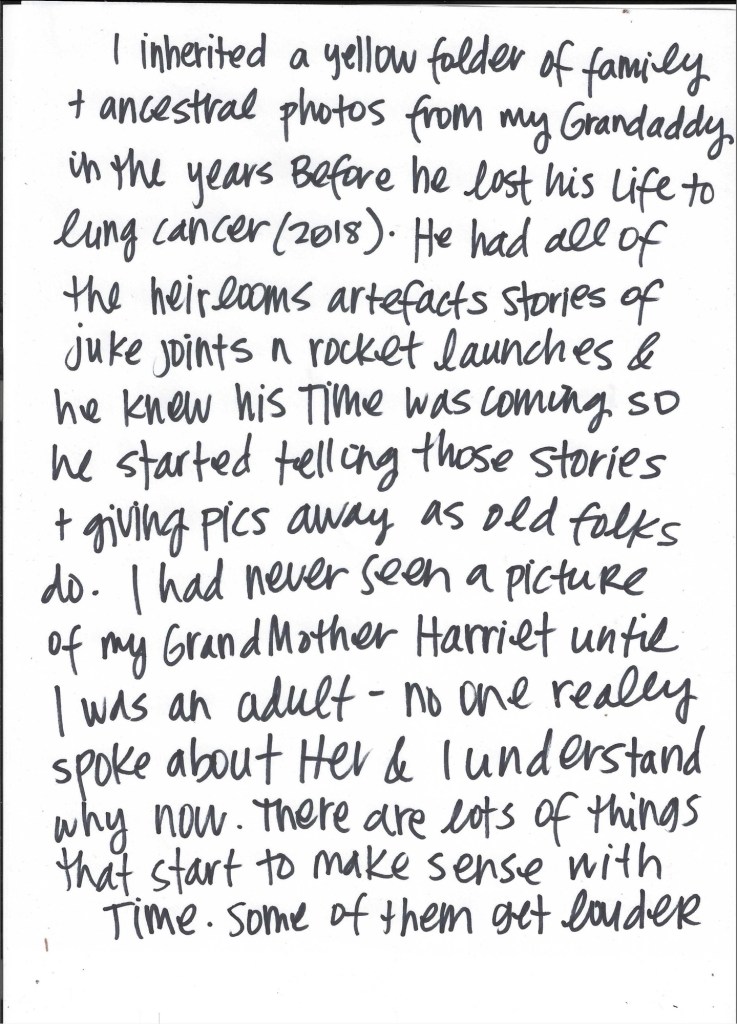 I inherited a yellow folder of family
+ ancestral photos from my Grandaddy
in the years Before he lost his life to
lung cancer (2018). He had all of
the heirlooms artefacts stories of
juke joints n rocket launches &
he knew his TIME was coming so
he started telling those stories
+ giving pics away as old folks
do. I had never seen a picture
of my GrandMother Harriet until
I was an adult - no one really
spoke about Her & I understand
why now. There are lots of things
that start to make sense with
TIME. Some of them get louder